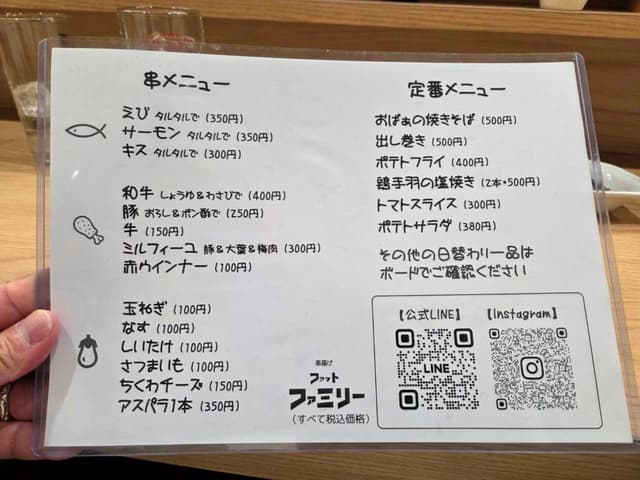 串メニュー
えび タルタルで (350円)
サーモン タルタルで (350円)
キス タルタルで (300円)
和牛 しょうゆ&わさびで (400円)
豚 おろし&ポン酢で (250円)
牛 (150円)
ミルフィーユ 豚&大葉&梅肉 (300円)
赤ウインナー (100円)
玉ねぎ (100円)
なす (100円)
しいたけ (100円)
さつまいも (100円)
ちくわチーズ (150円)
アスパラ1本 (350円)
定番メニュー
おばぁの焼きそば (500円)
出し巻き (500円)
ポテトフライ (400円)
鶏手羽の塩焼き (2本・500円)
トマトスライス (300円)
ポテトサラダ (380円)
その他の日替わり一品は
ボードでご確認ください
【公式LINE】
【Instagram】
LINE
串揚げ
ファット
ファミリー
(すべて税込価格)